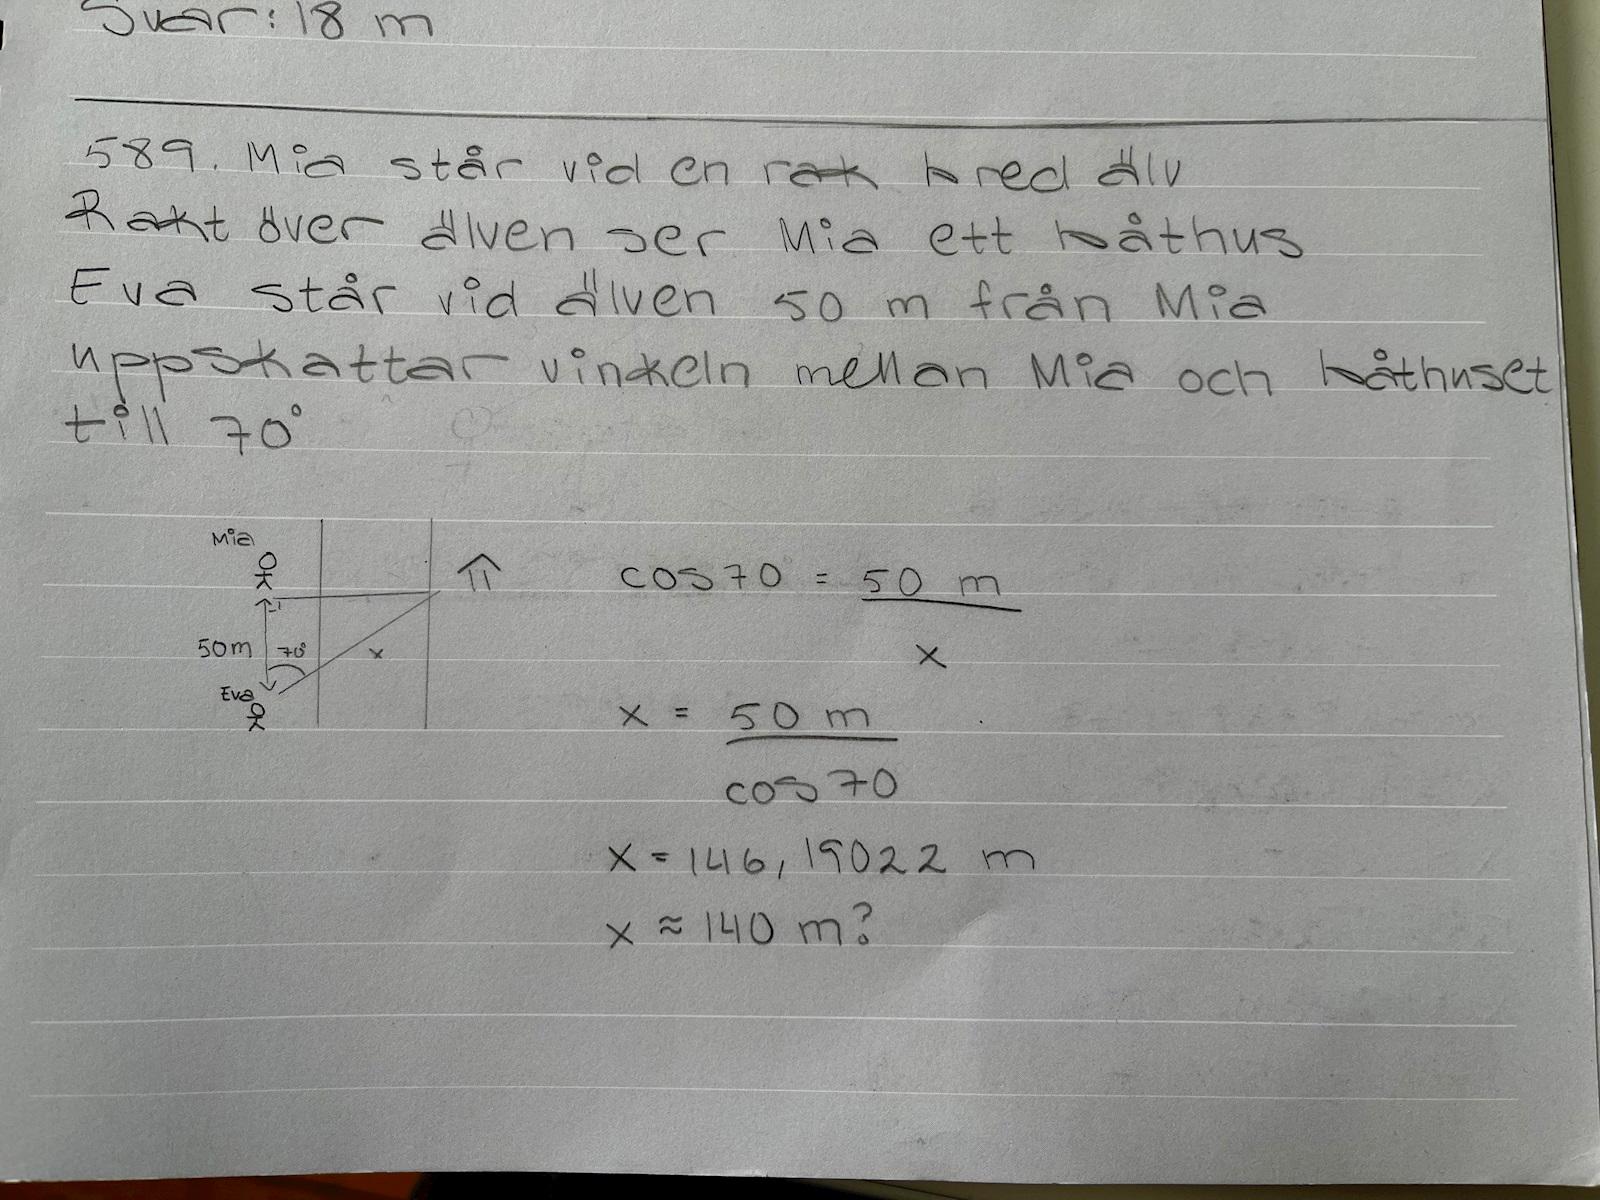 Svar: 18 m
589. Mia står vid en rak bred älv
Rakt över älven ser Mia ett båthus
Eva står vid älven 50 m från Mia
uppskattar vinkeln mellan Mia och båthuset
till 70°
Mia
50m 70° x
Eva
cos70 = 50 m
x
x = 50 m
cos70
x = 146,19022 m
x ≈ 140 m?